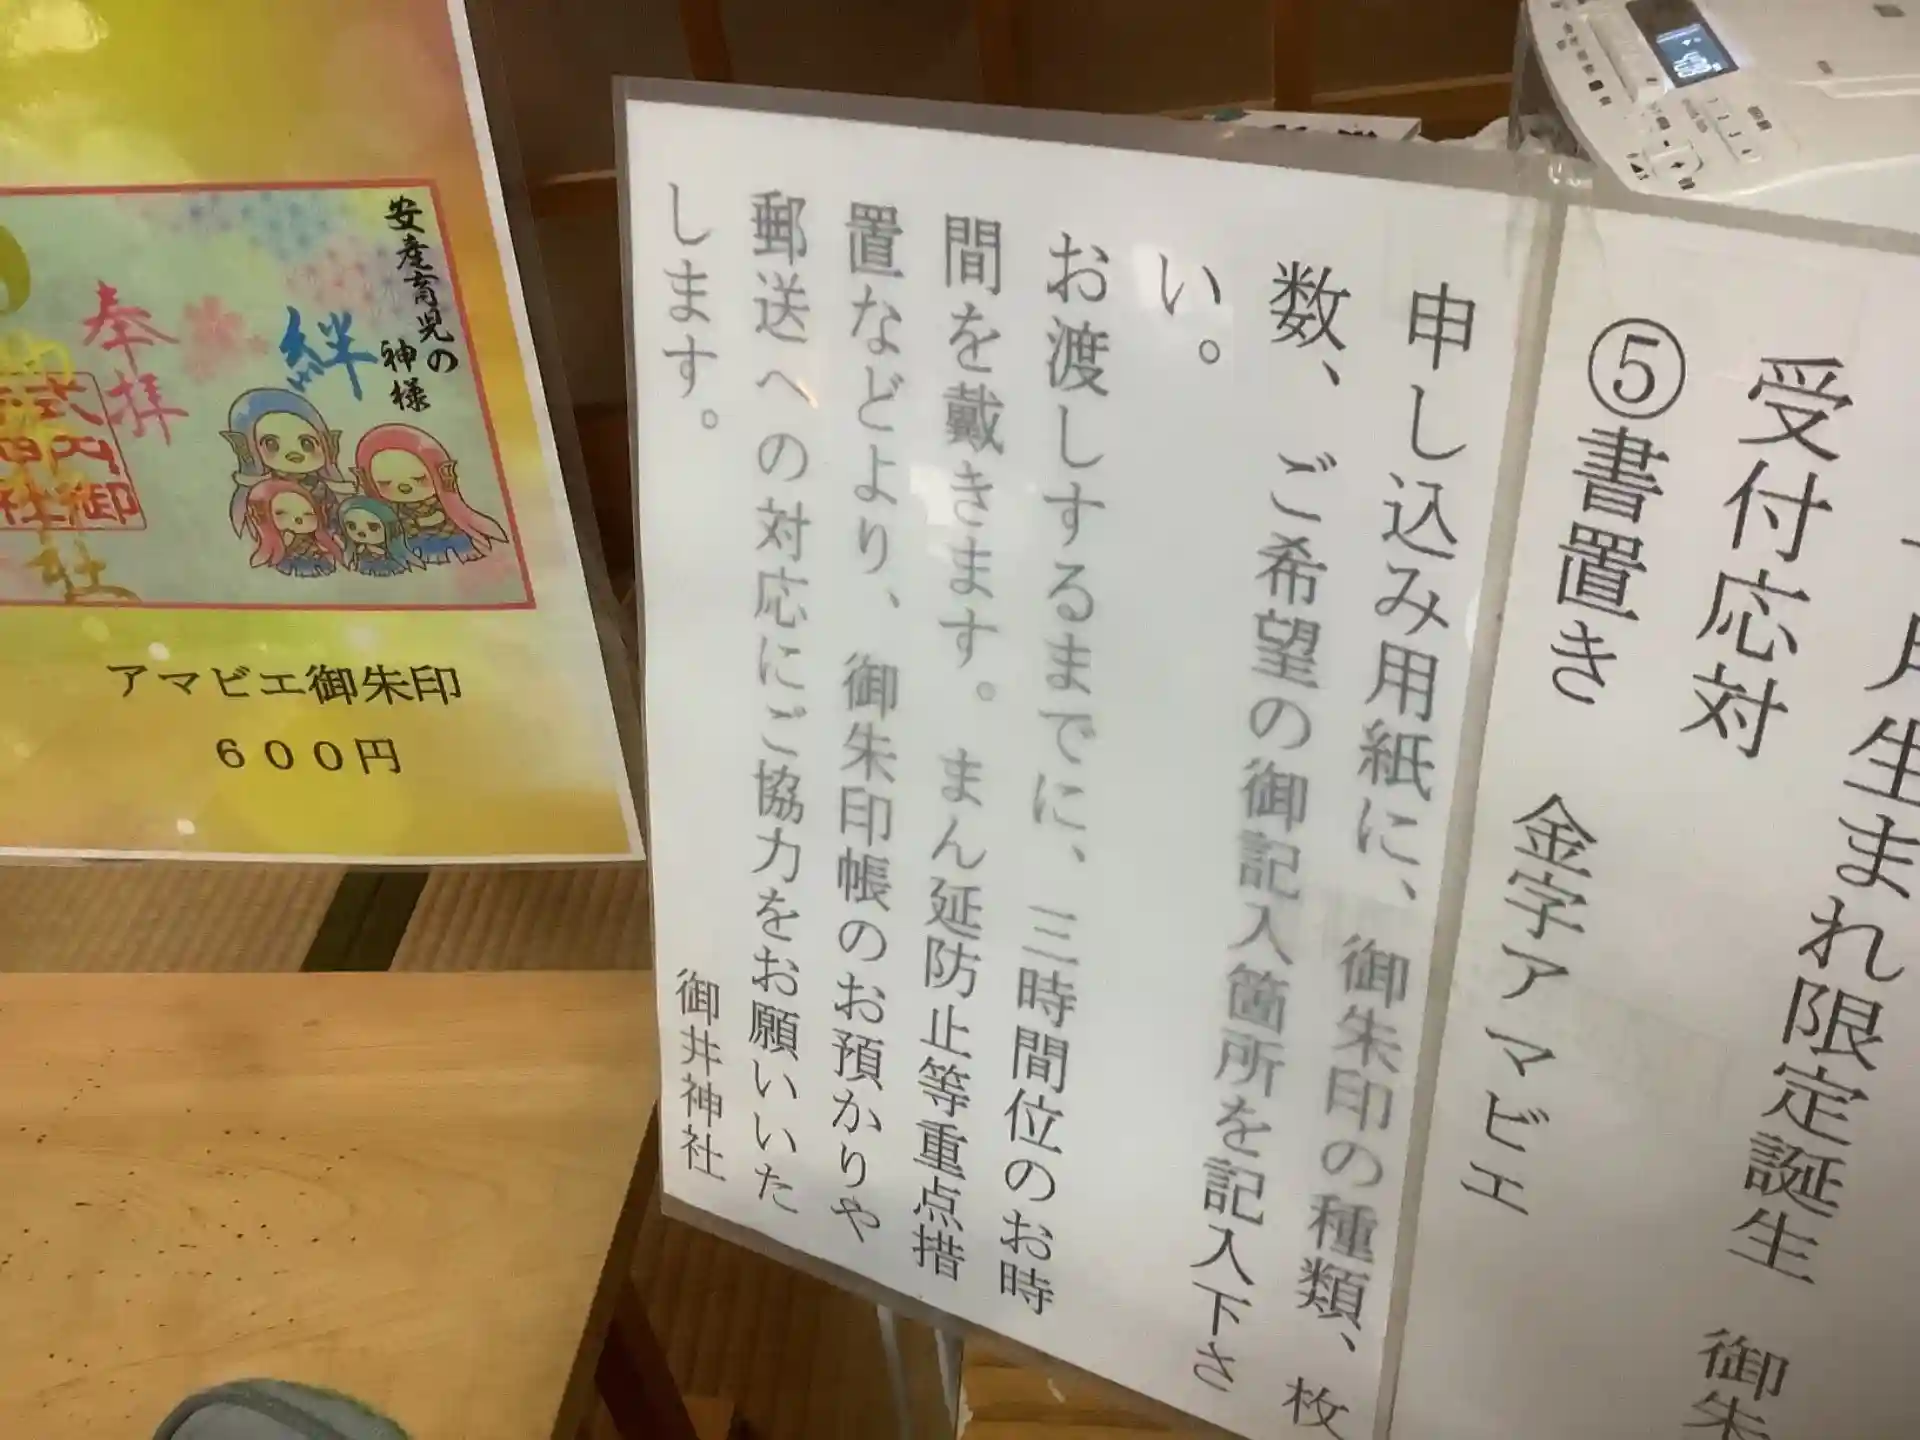 月生まれ限定誕生 御朱
受付応対
⑤書置き 金字アマビエ
申し込み用紙に、御朱印の種類、枚
数、ご希望の御記入箇所を記入下さ
い。
お渡しするまでに、三時間位のお時
間を戴きます。まん延防止等重点措
置などより、御朱印帳のお預かりや
郵送への対応にご協力をお願いいた
します。
御井神社
安産育児の
神様
絆
奉拝
アマビエ御朱印
600円